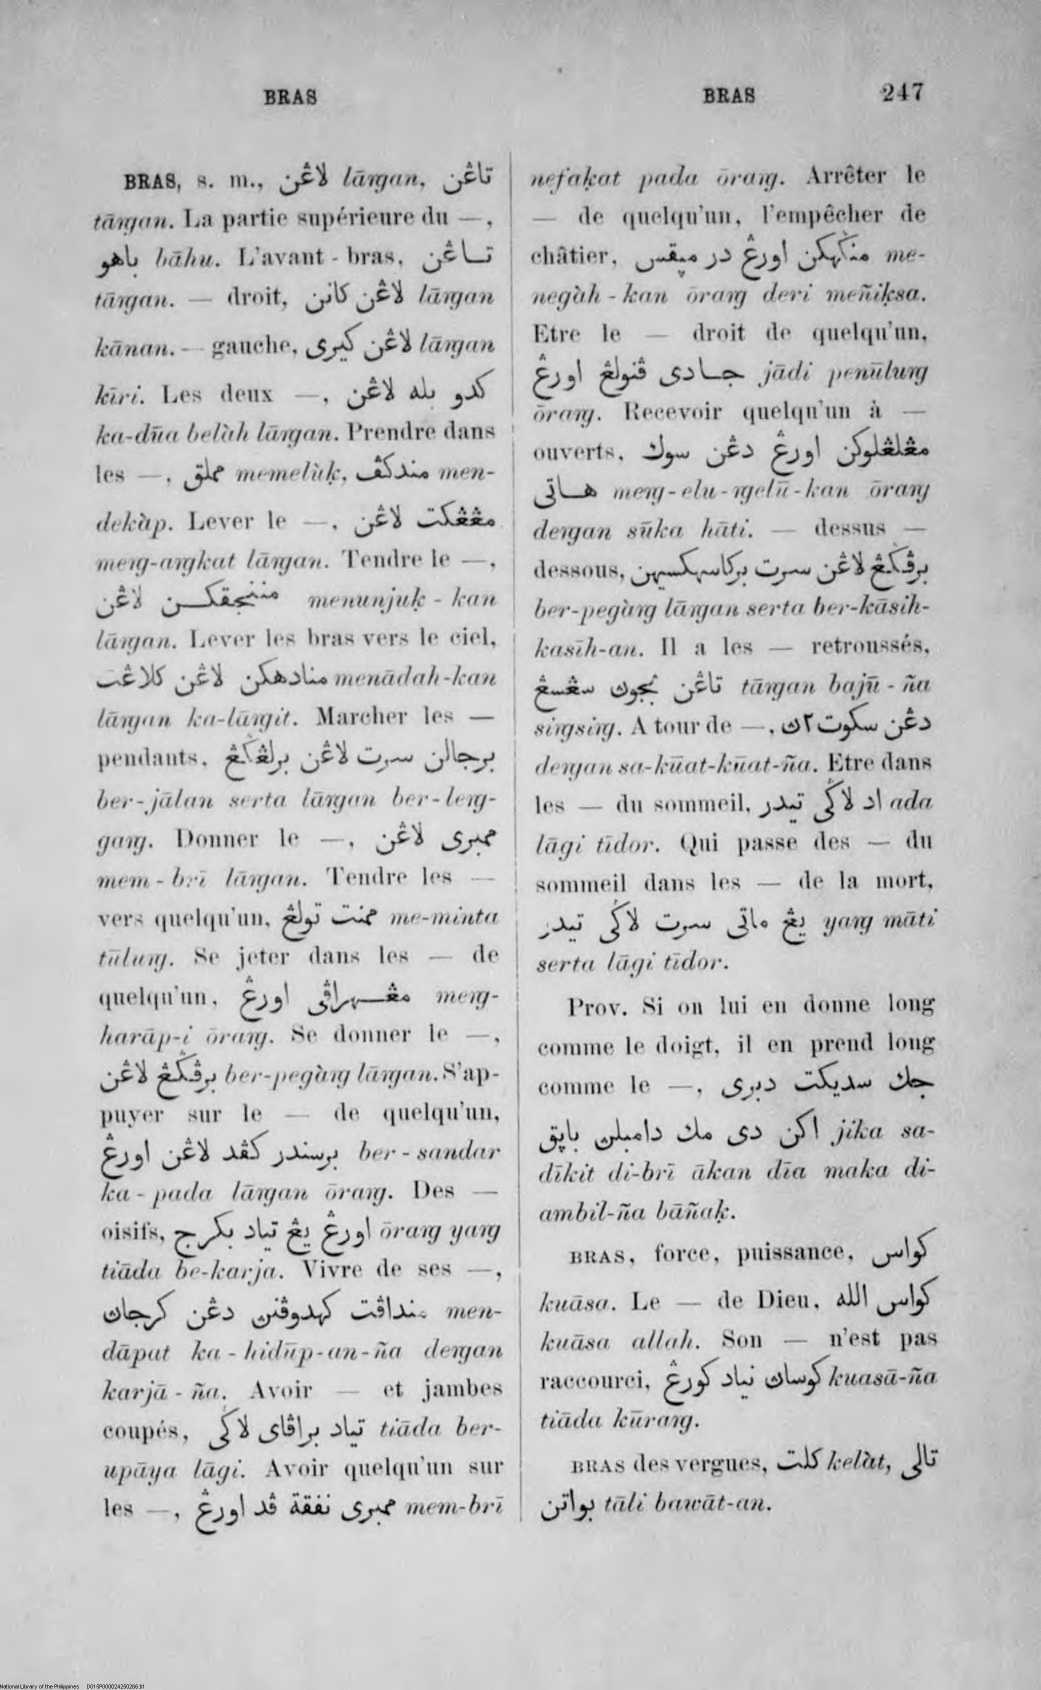 BRAS
BRAS 247
BRAS, s. m., لاڠن lāṅgan, تاڠن
tāṅgan. La partie supérieure du —,
باهو bāhu. L'avant-bras, تاڠن
tāṅgan. — droit, لاڠن کانن lāṅgan
kānan. — gauche, لاڠن کيرى lāṅgan
kīri. Les deux —, کدو بله لاڠن
ka-dūa belàh lāṅgan. Prendre dans
les —, مملق memelùḳ, مندکڤ men-
dekàp. Lever le —, مڠڠکت لاڠن
meṅg-aṅgkat lāṅgan. Tendre le —,
مننجقکن لاڠن menunjuḳ-kan
lāṅgan. Lever les bras vers le ciel,
منادهکن لاڠن کلاڠت menādah-kan
lāṅgan ka-lāṅgit. Marcher les —
pendants, برجالن سرت لاڠن برلڠݢڠ
ber-jālan serta lāṅgan ber-leṅg-
gaṅg. Donner le —, ممبرى لاڠن
mem-brī lāṅgan. Tendre les —
vers quelqu'un, ممنت تولڠ me-minta
tūluṅg. Se jeter dans les — de
quelqu'un, مڠهراڤى اورڠ meṅg-
harāp-i ōraṅg. Se donner le —,
برڤݢڠ لاڠن ber-pegàṅg lāṅgan. S'ap-
puyer sur le — de quelqu'un,
برسندر کڤد لاڠن اورڠ ber-sandar
ka-pada lāṅgan ōraṅg. Des —
oisifs, اورڠ يڠ تياد بکرج ōraṅg yaṅg
tiāda be-karja. Vivre de ses —,
منداڤت کهدوڤنن دڠن کرجاڽ men-
dāpat ka-hidūp-an-ña deṅgan
karjā-ña. Avoir — et jambes
coupés, تياد براڤاى لاݢى tiāda ber-
upāya lāgi. Avoir quelqu'un sur
les —, ممبرى نفقة ڤد اورڠ mem-brī
nefaḳat pada ōraṅg. Arrêter le
— de quelqu'un, l'empêcher de
châtier, منݢهکن اورڠ در ميڤقس me-
negàh-kan ōraṅg deri meñiḳsa.
Etre le — droit de quelqu'un,
جادى ڤنولڠ اورڠ jādi penūluṅg
ōraṅg. Recevoir quelqu'un à —
ouverts, مڠلڠلوکن اورڠ دڠن سوک
هاتى meṅg-elu-ṅgelū-kan ōraṅg
deṅgan sūka hāti. — dessus —
dessous, برڤݢڠ لاڠن سرت برکاسهکسيهن
ber-pegàṅg lāṅgan serta ber-kāsih-
kasīh-an. Il a les — retroussés,
تاڠن بجوڽ سڠسڠ tāṅgan bajū-ña
siṅgsiṅg. A tour de —, دڠن سکوت٢ڽ
deṅgan sa-kūat-kūat-ña. Etre dans
les — du sommeil, اد لاݢى تيدر ada
lāgi tīdor. Qui passe des — du
sommeil dans les — de la mort,
يڠ ماتى سرت لاݢى تيدر yaṅg māti
serta lāgi tīdor.
Prov. Si on lui en donne long
comme le doigt, il en prend long
comme le —, جک سديکت دبرى
اکن دى مک دامبلن باڽق jika sa-
dīkit di-brī ākan dīa maka di-
ambil-ña bāñaḳ.
BRAS, force, puissance, کواس
kuāsa. Le — de Dieu, کواس الله
kuāsa allah. Son — n'est pas
raccourci, کوساڽ تياد کورڠ kuasā-ña
tiāda kūraṅg.
BRAS des vergues, کلت kelàt, تالى
بواتن tāli bawāt-an.
National Library of the Philippines